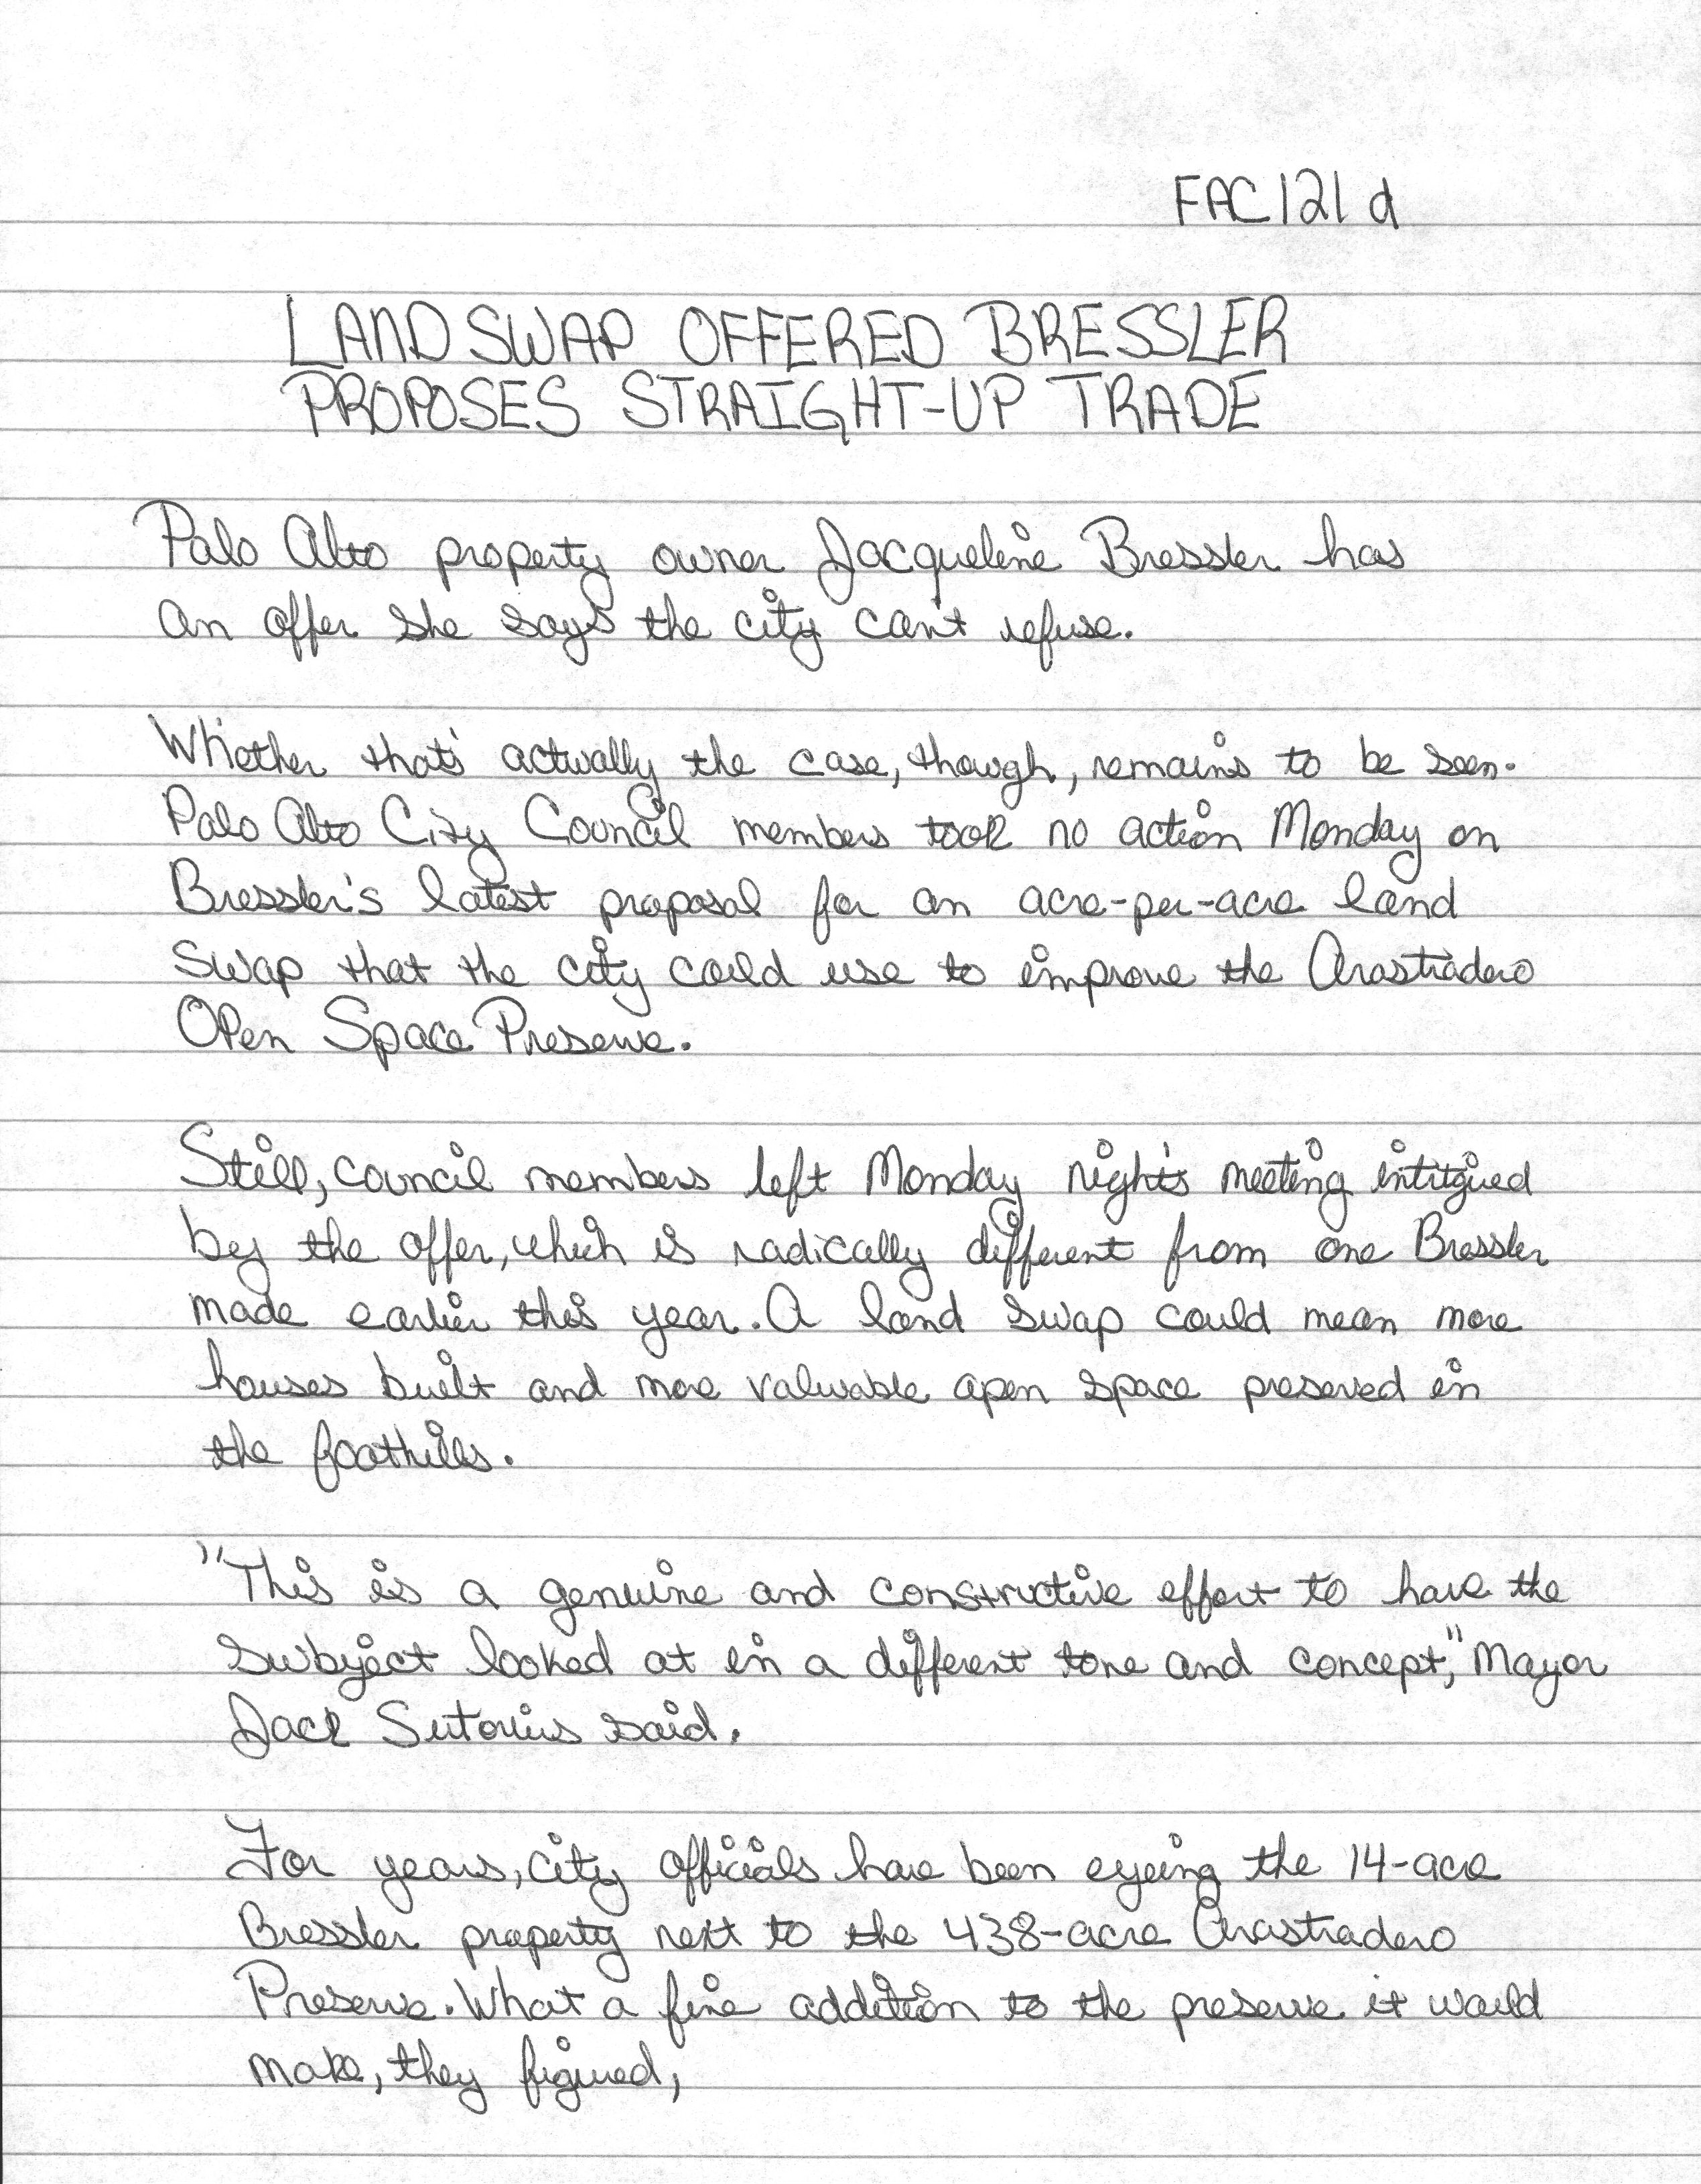 FAC121d
LAND SWAP OFFERED BRESSLER
PROPOSES STRAIGHT-UP TRADE
Palo Alto property owner Jacqueline Bressler has
an offer she says the city can't refuse.
Whether that's actually the case, though, remains to be seen.
Palo Alto City Council members took no action Monday on
Bressler's latest proposal for an acre-per-acre land
Swap that the city could use to improve the Arastradero
Open Space Preserve.
Still, council members left Monday night's meeting intitgued
by the offer, which is radically different from one Bressler
made earlier this year. A land swap could mean more
houses built and more valuable open space preserved in
the foothills.
"This is a genuine and constructive effort to have the
subject looked at in a different tone and concept," Mayor
Jack Sutorius said.
For years, city officials have been eyeing the 14-acre
Bressler property next to the 438-acre Arastradero
Preserve. What a fine addition to the preserve it would
make, they figured,